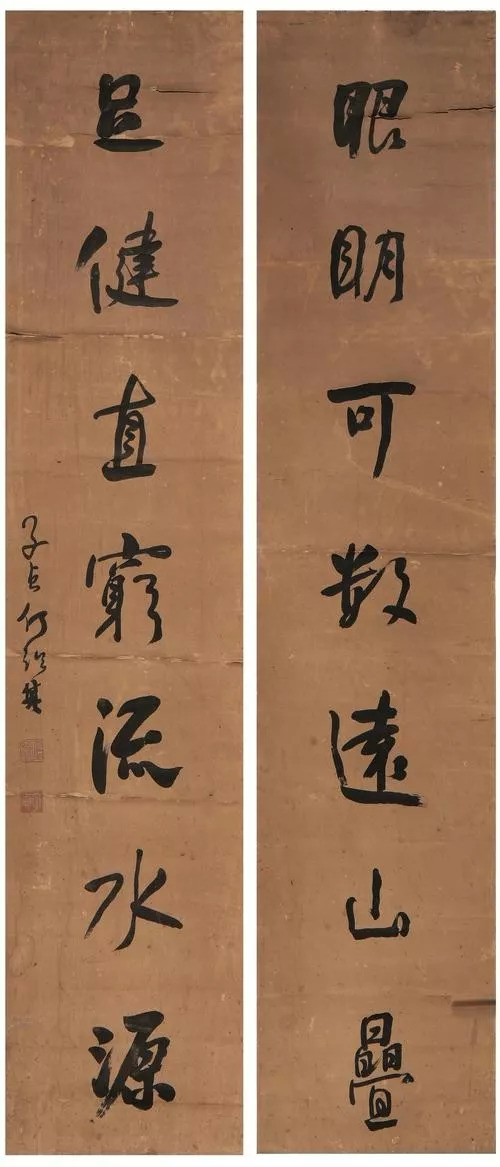 眼明可数遠山疊
足健直窮流水源
子貞何紹基